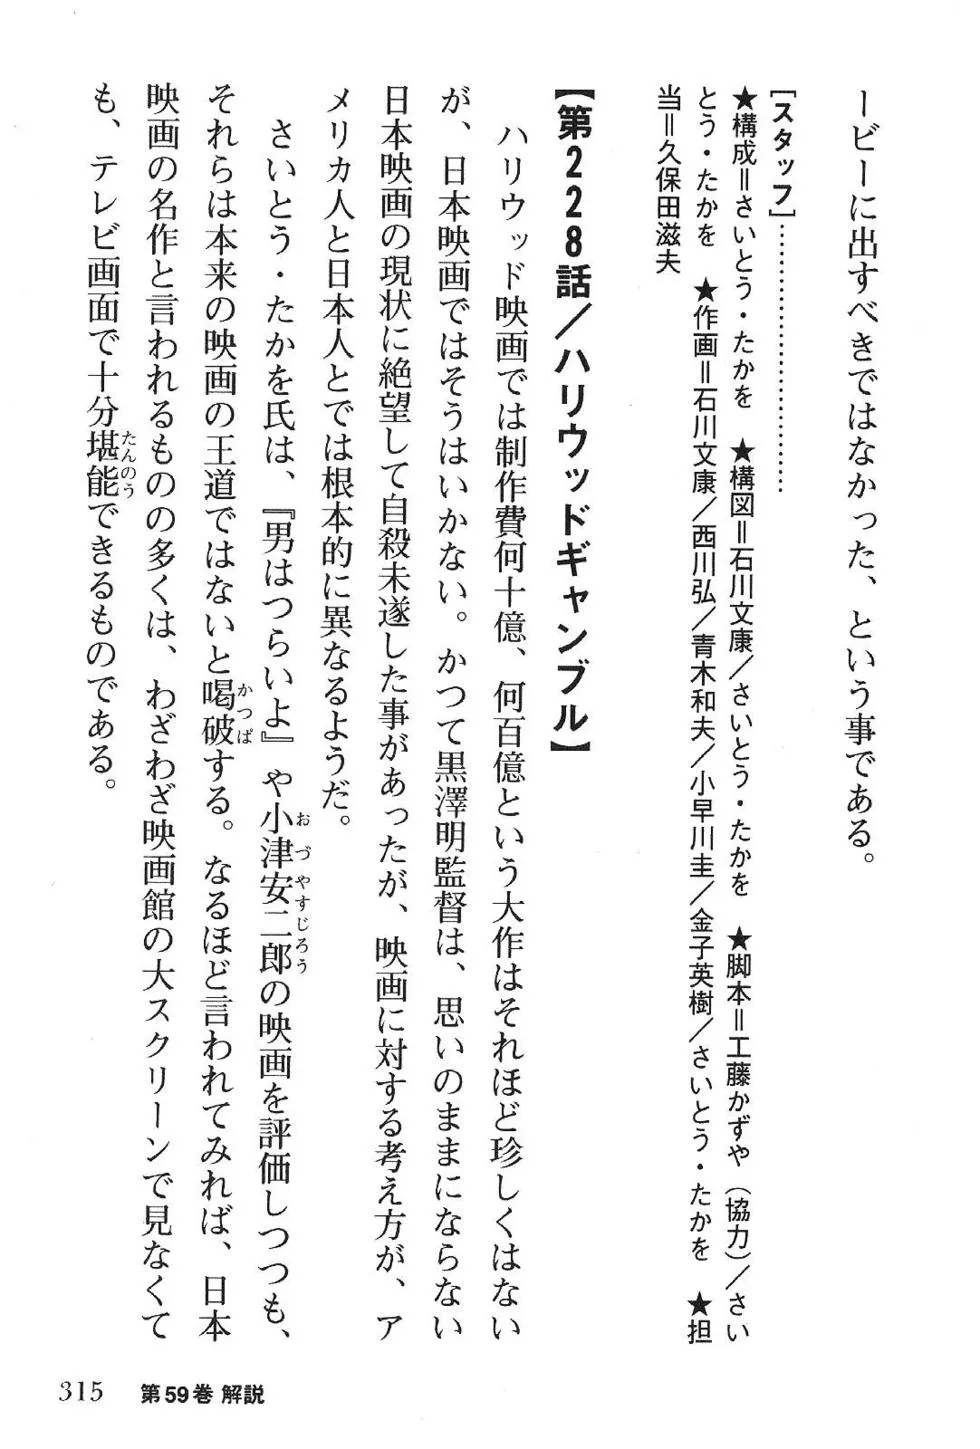 ービーに出すべきではなかった、という事である。
[スタッフ]…………………………
★構成＝さいとう・たかを　★構図＝石川文康／さいとう・たかを　★脚本＝工藤かずや（協力）／さい
とう・たかを　★作画＝石川文康／西川弘／青木和夫／小早川圭／金子英樹／さいとう・たかを　★担
当＝久保田滋夫
【第228話／ハリウッドギャンブル】
ハリウッド映画では制作費何十億、何百億という大作はそれほど珍しくはない
が、日本映画ではそうはいかない。かつて黒澤明監督は、思いのままにならない
日本映画の現状に絶望して自殺未遂した事があったが、映画に対する考え方が、ア
メリカ人と日本人とでは根本的に異なるようだ。
さいとう・たかを氏は、『男はつらいよ』や小津安二郎の映画を評価しつつも、
おづやすじろう
それらは本来の映画の王道ではないと喝破する。なるほど言われてみれば、日本
かつぱ
映画の名作と言われるものの多くは、わざわざ映画館の大スクリーンで見なくて
も、テレビ画面で十分堪能できるものである。
たんのう
315　第59巻 解説